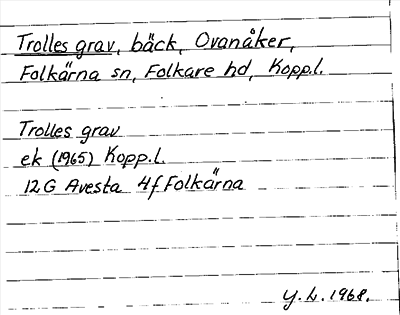 Trolles grav, bäck, Ovanåker,
Folkärna sn, Folkare hd, Kopp.l.
Trolles grav
ek (1965) Kopp.l.
12G Avesta 4f Folkärna
Y.L. 1968.